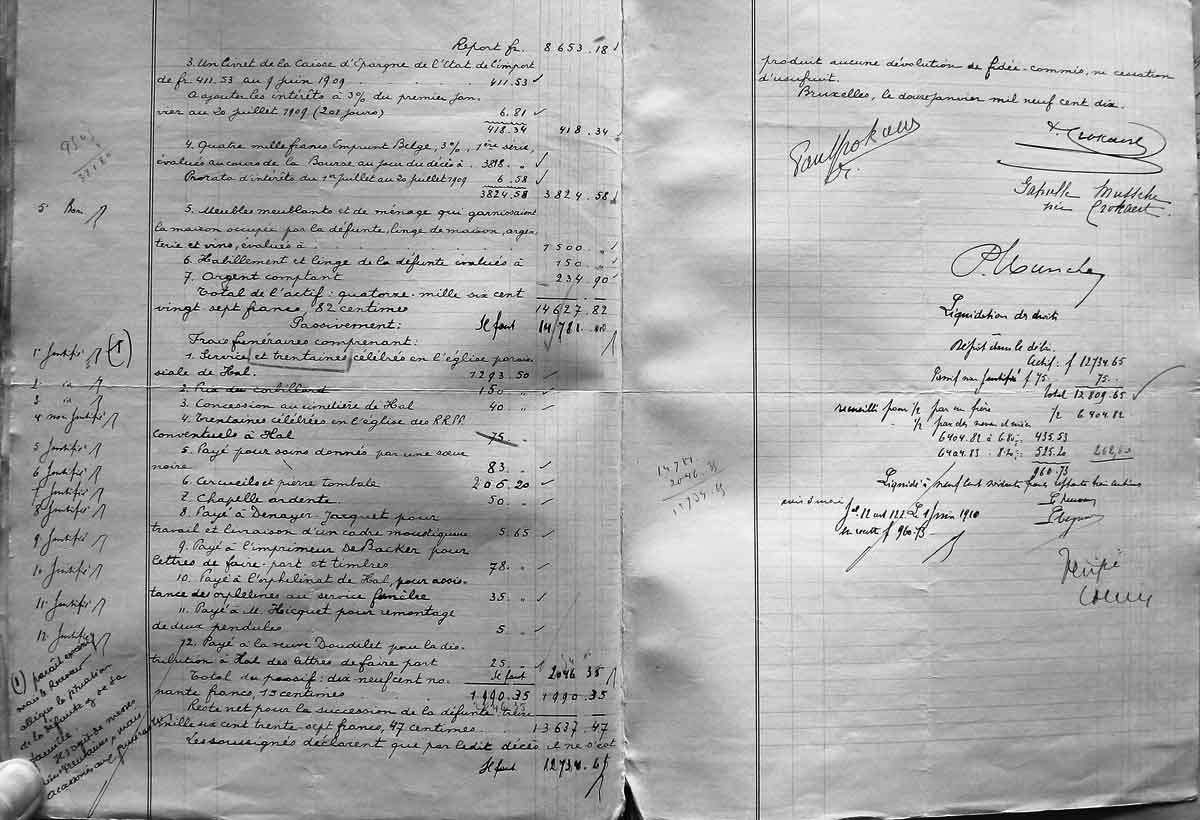 Report fr. 8653.18
3. Un livret de la Caisse d'Epargne de l'Etat de l'import
de fr. 411.53 au 9 juin 1909 . 411.53
A ajouter les intérêts à 3% du premier jan
vier au 20 juillet 1909 (201 jours) 6.81
418.34 418.34
4. Quatre mille francs Emprunt Belge, 3%, 1ère série,
évalués au cours de la Bourse au jour du décès à . 3818. "
Prorata d'intérêts du 1er juillet au 20 juillet 1909 6.58
3824.58 3824.58
5 Bon
5. Meubles meublants et de ménage qui garnissaient
la maison occupée par la défunte, linge de maison, argen
terie et vins, évalués à . . . 1500. "
6. Habillement et linge de la défunte évalués à 150. "
7. Argent comptant 234.90
Total de l'actif: quatorze mille six cent
vingt sept francs, 82 centimes 14627.82
Passivement: Il faut 14,781
Frais funéraires comprenant:
1 Justifié (1)
1. Services et trentaines célébrés en l'église parois
siale de Hal. 1293.50
2 id
2. Prix du corbillard 150 "
3 id
3. Concession au cimetière de Hal 40 "
4 non justifié
4. Trentaines célébrées en l'église des RR.PP.
Conventuels à Hal 75.
5 Justifié
5. Payé pour soins donnés par une sœur
noire 83. "
6 Justifié
6. Cercueils et pierre tombale 206.20
7 Justifié
7. Chapelle ardente 50. "
8 Justifié
8. Payé à Denayer-Jacquet pour
travail et livraison d'un cadre moustiquaire 5.65
9 Justifié
9. Payé à l'imprimeur De Backer pour
lettres de faire-part et timbres 78. "
10 Justifié
10. Payé à l'orphelinat de Hal, pour assis
tance des orphelines au service funèbre 35. "
11 Justifié
11. Payé à M. Hicquet pour remontage
de deux pendules 5. "
12 Justifié
12. Payé à la veuve Doudilet pour la dis
tribution à Hal des lettres de faire part 25. "
Il faut 2046.35
Total du passif: dix-neuf cent no
nante francs, 35 centimes 1990.35 1990.35
Reste net pour la succession de la défunte treize
mille six cent trente-sept francs, 47 centimes 13637.47
Les soussignés déclarent que par ledit décès il ne s'est
Il faut 12734.65
(1)
de la défunte
famille
produit aucune dévolution de fidéi-commis, ni cessation
d'usufruit.
Bruxelles, le douze janvier mil neuf cent dix.
Paul Crokaert
Crokaert
Mussche
née Crokaert
Liquidation des droits
Dépôt dans le délai.
Actif: f 12734.65
Passif non justifié f 75. 75.
Total 12.809.65
recueilli pour 1/2 par un frère 1/2 6404.82
1/2 par des neveux
6404.82 à 6.80% 435.53
6404.83 8.20% 525.20
960.73
14.781
2046.35
12734.65
1910
en recette f 960.73